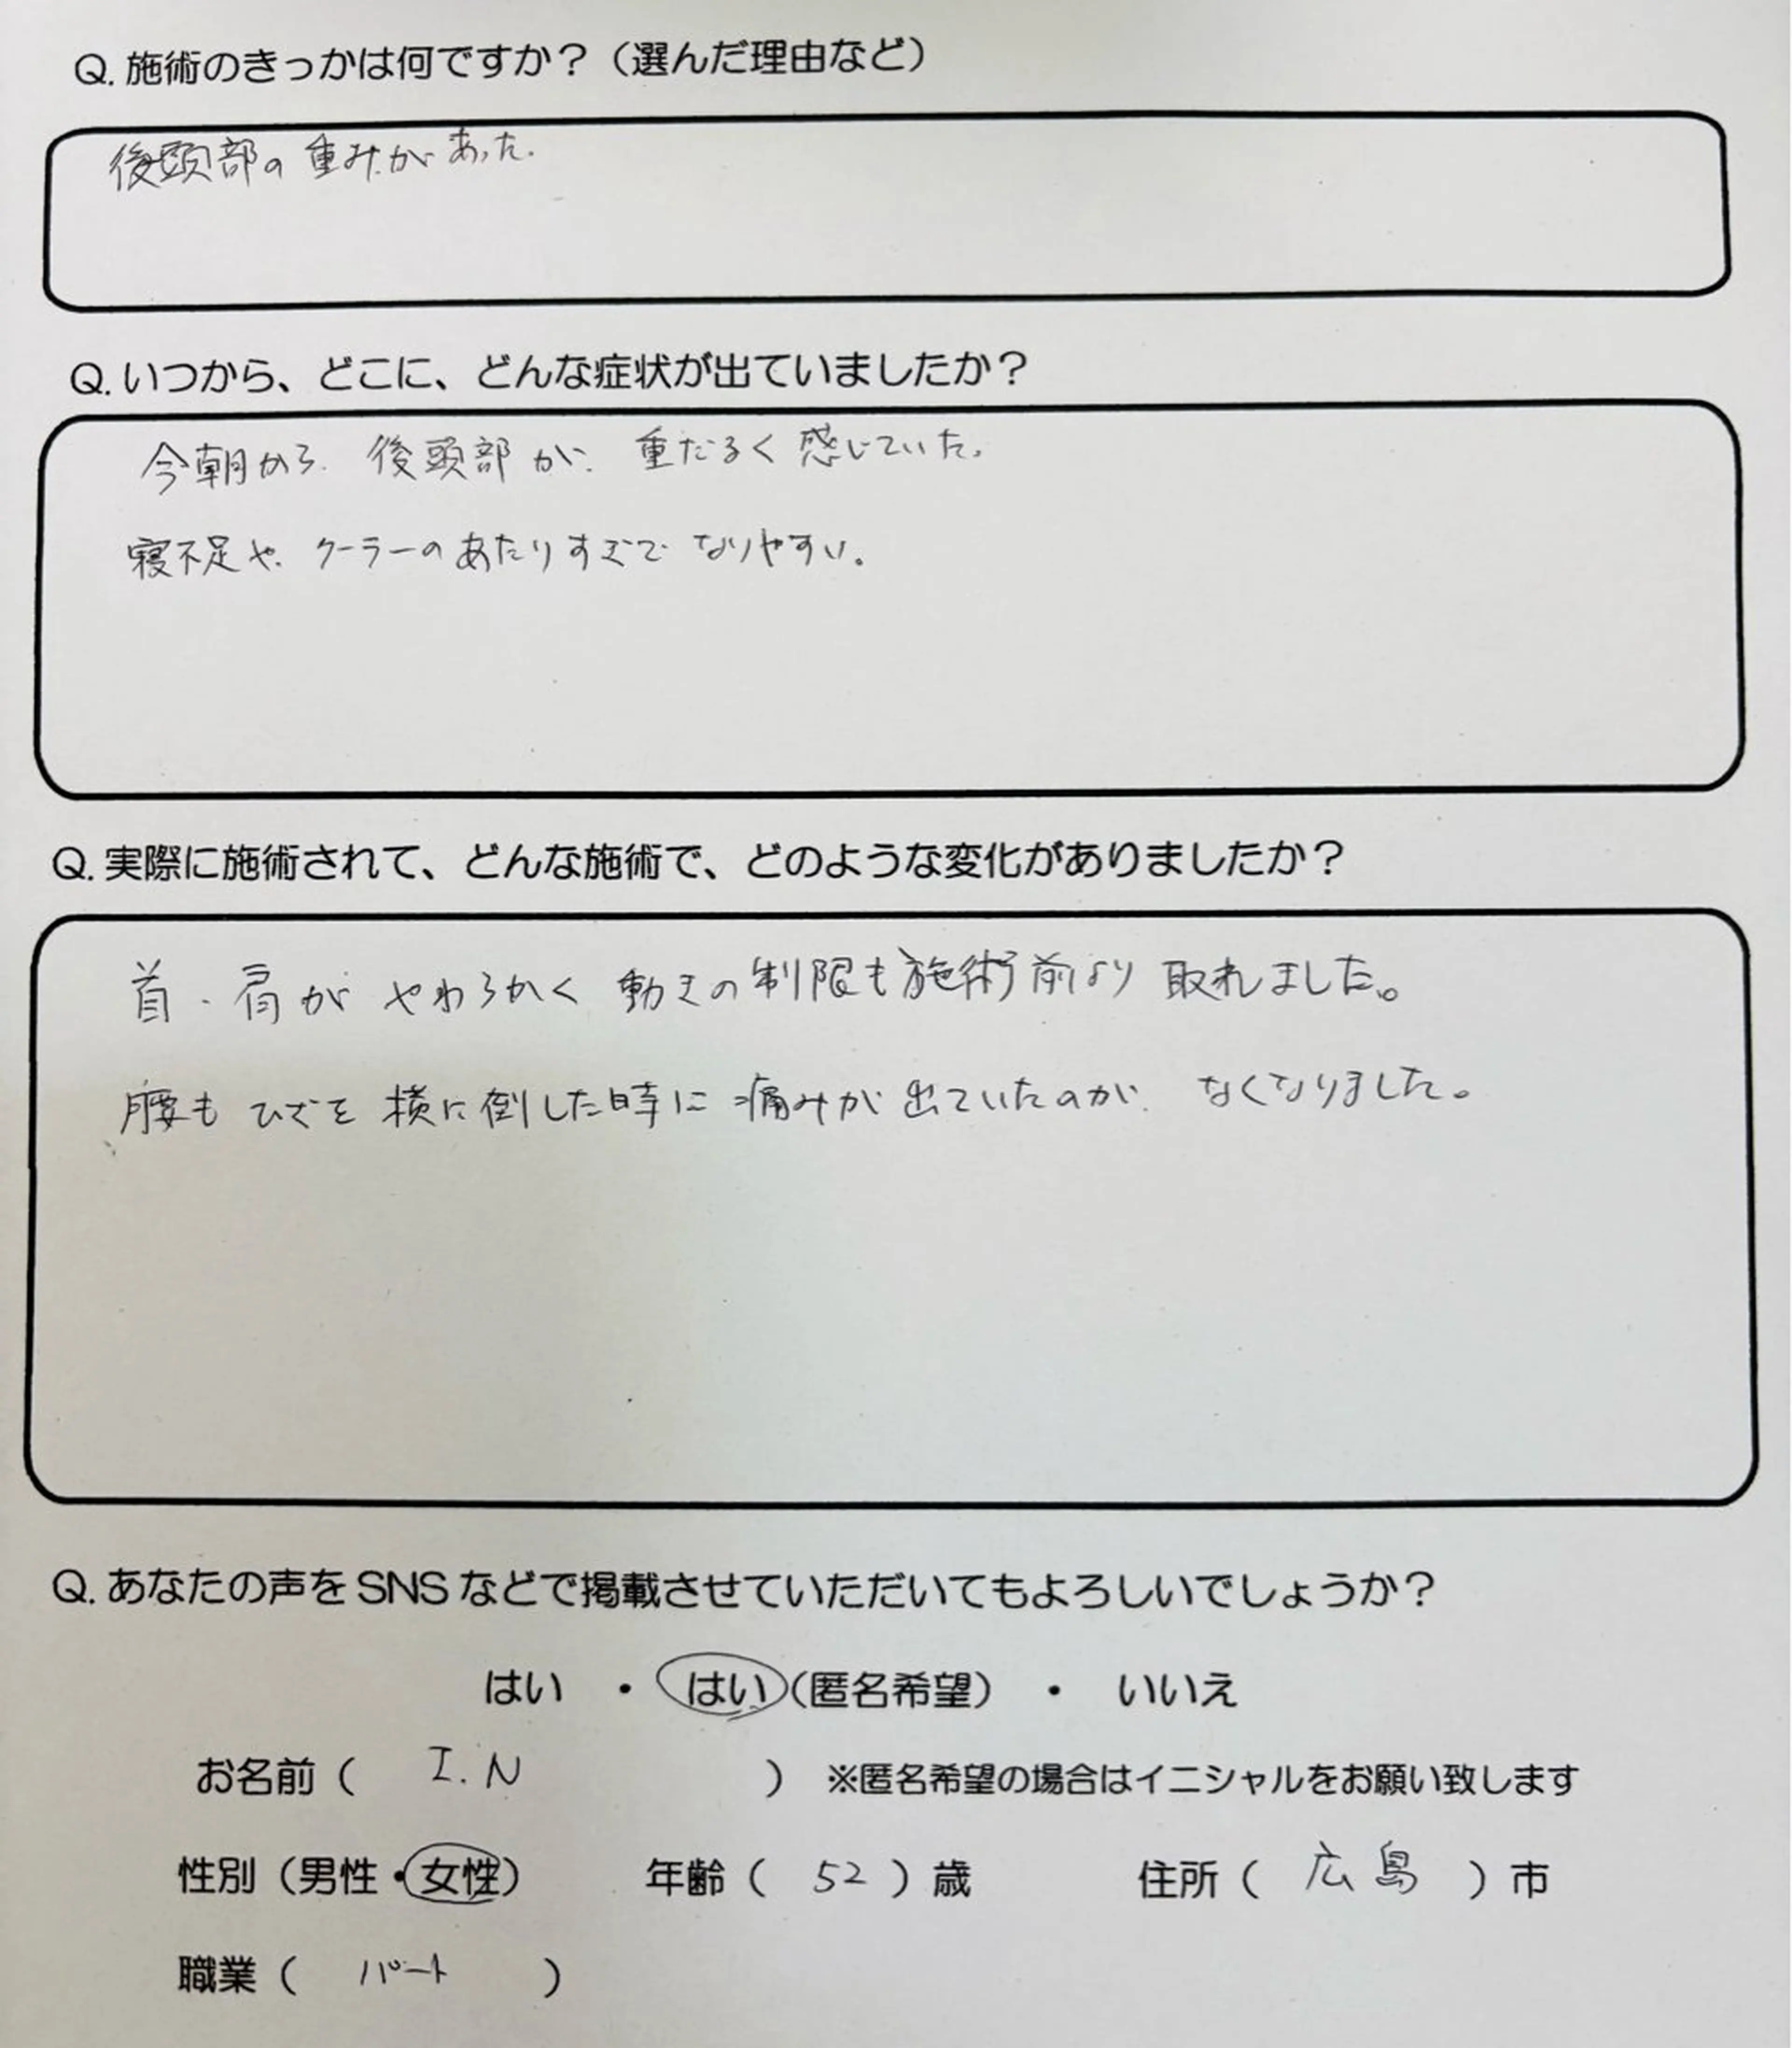 Q. 施術のきっかは何ですか？（選んだ理由など）
後頭部の重みがあった.
Q. いつから、どこに、どんな症状が出ていましたか？
今朝から. 後頭部が. 重だるく感じていた。
寝不足や. クーラーのあたりすぎで なりやすい。
Q. 実際に施術されて、どんな施術で、どのような変化がありましたか？
首・肩が やわらかく 動きの制限も施術前より 取れました。
腰も ひざを 横に倒した時に 痛みが 出ていたのが. なくなりました。
Q. あなたの声をSNSなどで掲載させていただいてもよろしいでしょうか？
はい ・ はい（匿名希望） ・ いいえ
お名前（ I.N ） ※匿名希望の場合はイニシャルをお願い致します
性別（男性・女性） 年齢（ 52 ）歳 住所（ 広島 ）市
職業（ パート ）